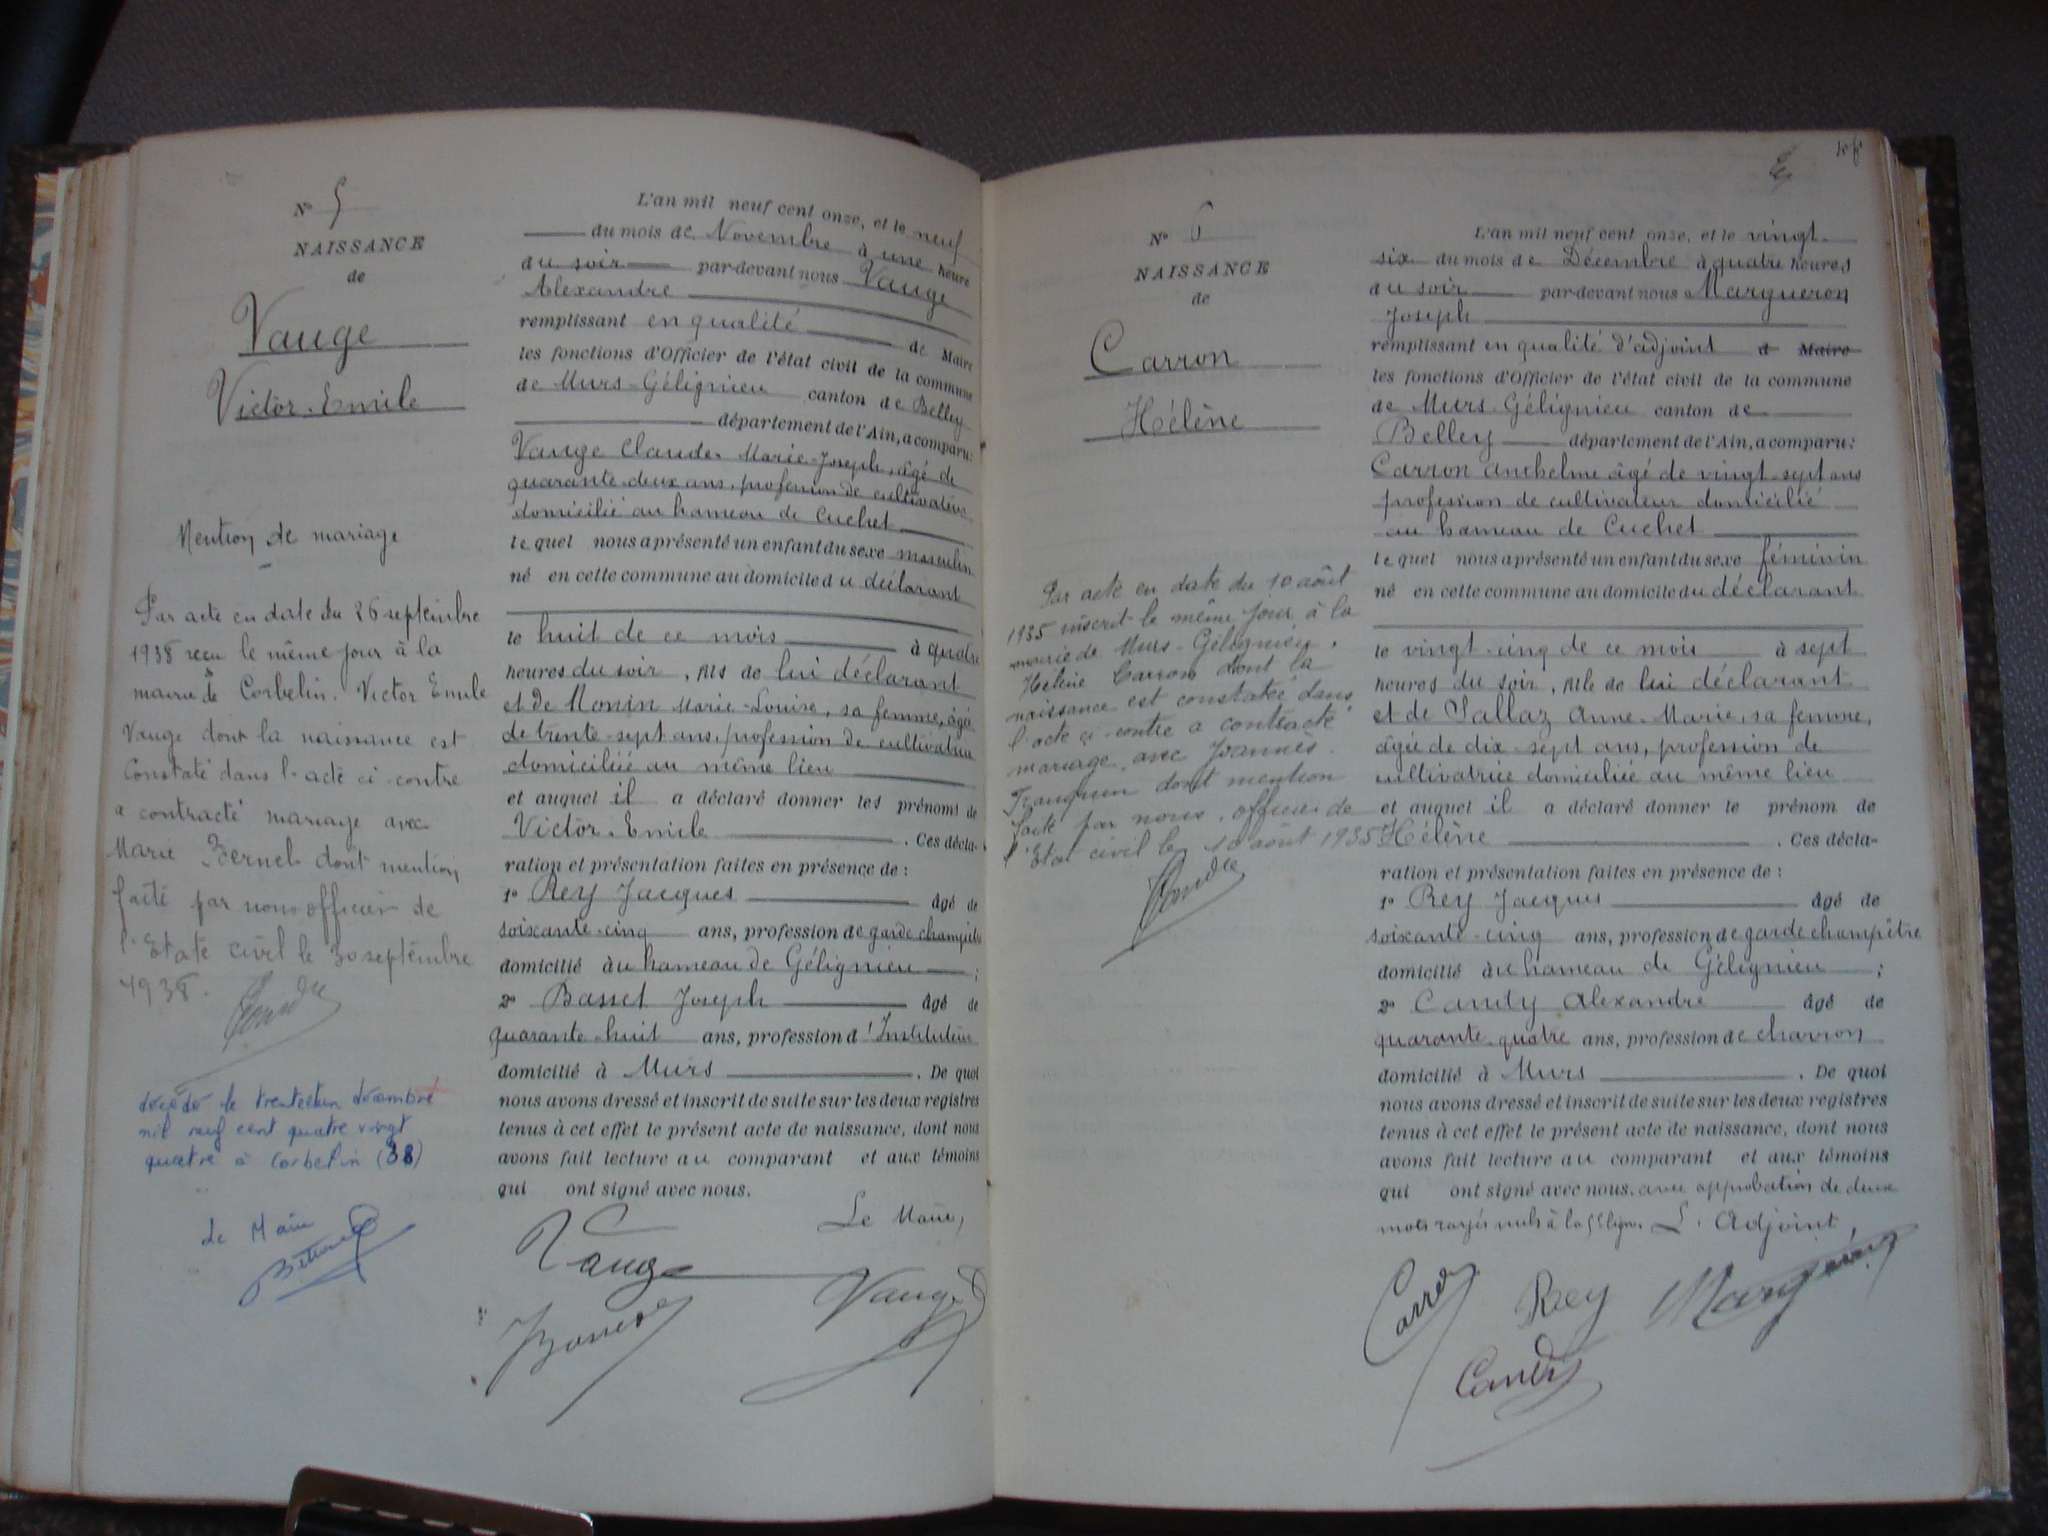 N° 5
NAISSANCE
de
Vauge
Victor-Emile
Mention de mariage
Par acte en date du 26 septembre
1938 reçu le même jour à la
mairie de Corbelin. Victor Emile
Vauge dont la naissance est
Constaté dans l'acte ci-contre
a contracté mariage avec
Marie dont mention
faite par nous officier de
l'Etate civil le 30 septembre
1938.
décédé le trente et un décembre
mil neuf cent quatre vingt
quatre à Corbelin (38)
Le Maire
L'an mil neuf cent onze, et le neuf
du mois de Novembre à une heure
du soir par-devant nous Vauge
Alexandre
remplissant en qualité de Maire
les fonctions d'Officier de l'état civil de la commune
de Murs-Gélignieu canton de Belley
département de l'Ain, a comparu:
Vauge Claude-Marie-Joseph, âgé de
quarante-deux ans, profession de cultivateur
domicilié au hameau de Cuchet
le quel nous a présenté un enfant du sexe masculin
né en cette commune au domicile du déclarant
le huit de ce mois à quatre
heures du soir, fils de lui déclarant
et de Monin Marie-Louise, sa femme, âgée
de trente-sept ans, profession de cultivatrice
domiciliée au même lieu
et auquel il a déclaré donner les prénoms de
Victor-Emile . Ces décla-
ration et présentation faites en présence de :
1° Rey Jacques âgé de
soixante-cinq ans, profession de garde champêtre
domicilié à u hameau de Gélignieu ;
2° Basset Joseph âgé de
quarante-huit ans, profession d'Instituteur
domicilié à Murs . De quoi
nous avons dressé et inscrit de suite sur les deux registres
tenus à cet effet le présent acte de naissance, dont nous
avons fait lecture au comparant et aux témoins
qui ont signé avec nous.
Le Maire,
Vauge
Vauge
Basset
N° 6
NAISSANCE
de
Carron
Hélène
Par acte en date du 10 août
1935 inscrit le même jour à la
mairie de Murs-Gélignieu,
Hélène Carron dont la
naissance est constatée dans
l'acte ci-contre a contracté
mariage avec Joannès
dont mention
faite par nous, officier de
l'Etat civil le 10 août 1935
L'an mil neuf cent onze, et le vingt-
six du mois de Décembre à quatre heures
du soir par-devant nous Margueron
Joseph
remplissant en qualité d'adjoint d Maire
les fonctions d'Officier de l'état civil de la commune
de Murs-Gélignieu canton de
Belley département de l'Ain, a comparu:
Carron Anthelme âgé de vingt-sept ans
profession de cultivateur domicilié
au hameau de Cuchet
le quel nous a présenté un enfant du sexe féminin
né en cette commune au domicile du déclarant
le vingt-cinq de ce mois à sept
heures du soir, fille de lui déclarant
et de Jallaz Anne-Marie, sa femme,
âgée de dix-sept ans, profession de
cultivatrice domiciliée au même lieu
et auquel il a déclaré donner le prénom de
Hélène . Ces décla-
ration et présentation faites en présence de :
1° Rey Jacques âgé de
soixante-cinq ans, profession de garde champêtre
domicilié à u hameau de Gélignieu ;
2° Candy Alexandre âgé de
quarante-quatre ans, profession de charron
domicilié à Murs . De quoi
nous avons dressé et inscrit de suite sur les deux registres
tenus à cet effet le présent acte de naissance, dont nous
avons fait lecture au comparant et aux témoins
qui ont signé avec nous. avec approbation de deux
mots rayés nuls à la 5e ligne. L'Adjoint,
Carron Rey Margueron
Candy